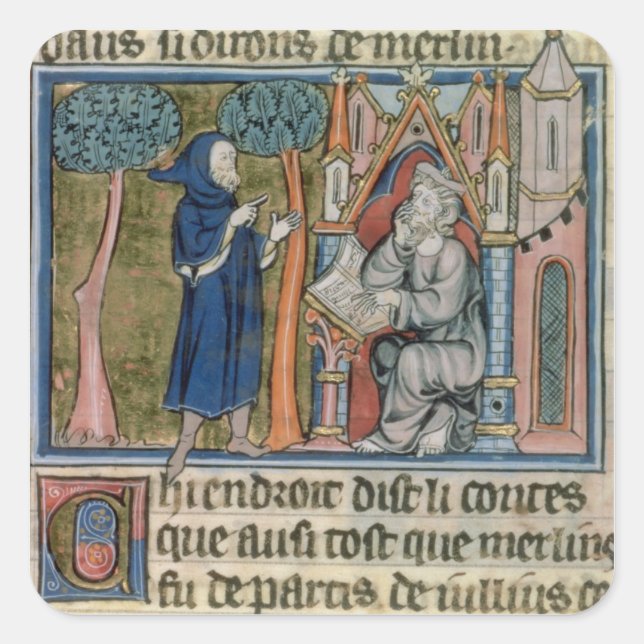 paus si dirons de merlin.
Chi endroit dist li contes
que ausi tost que merlins
fu departis de iullius ce